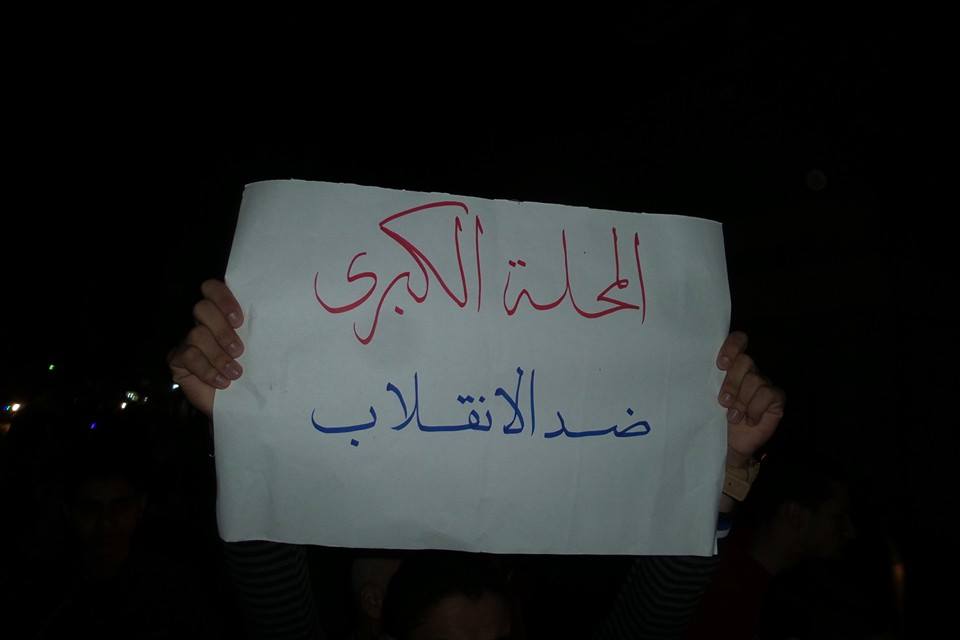 المحلة الكبرى
ضد الانقلاب